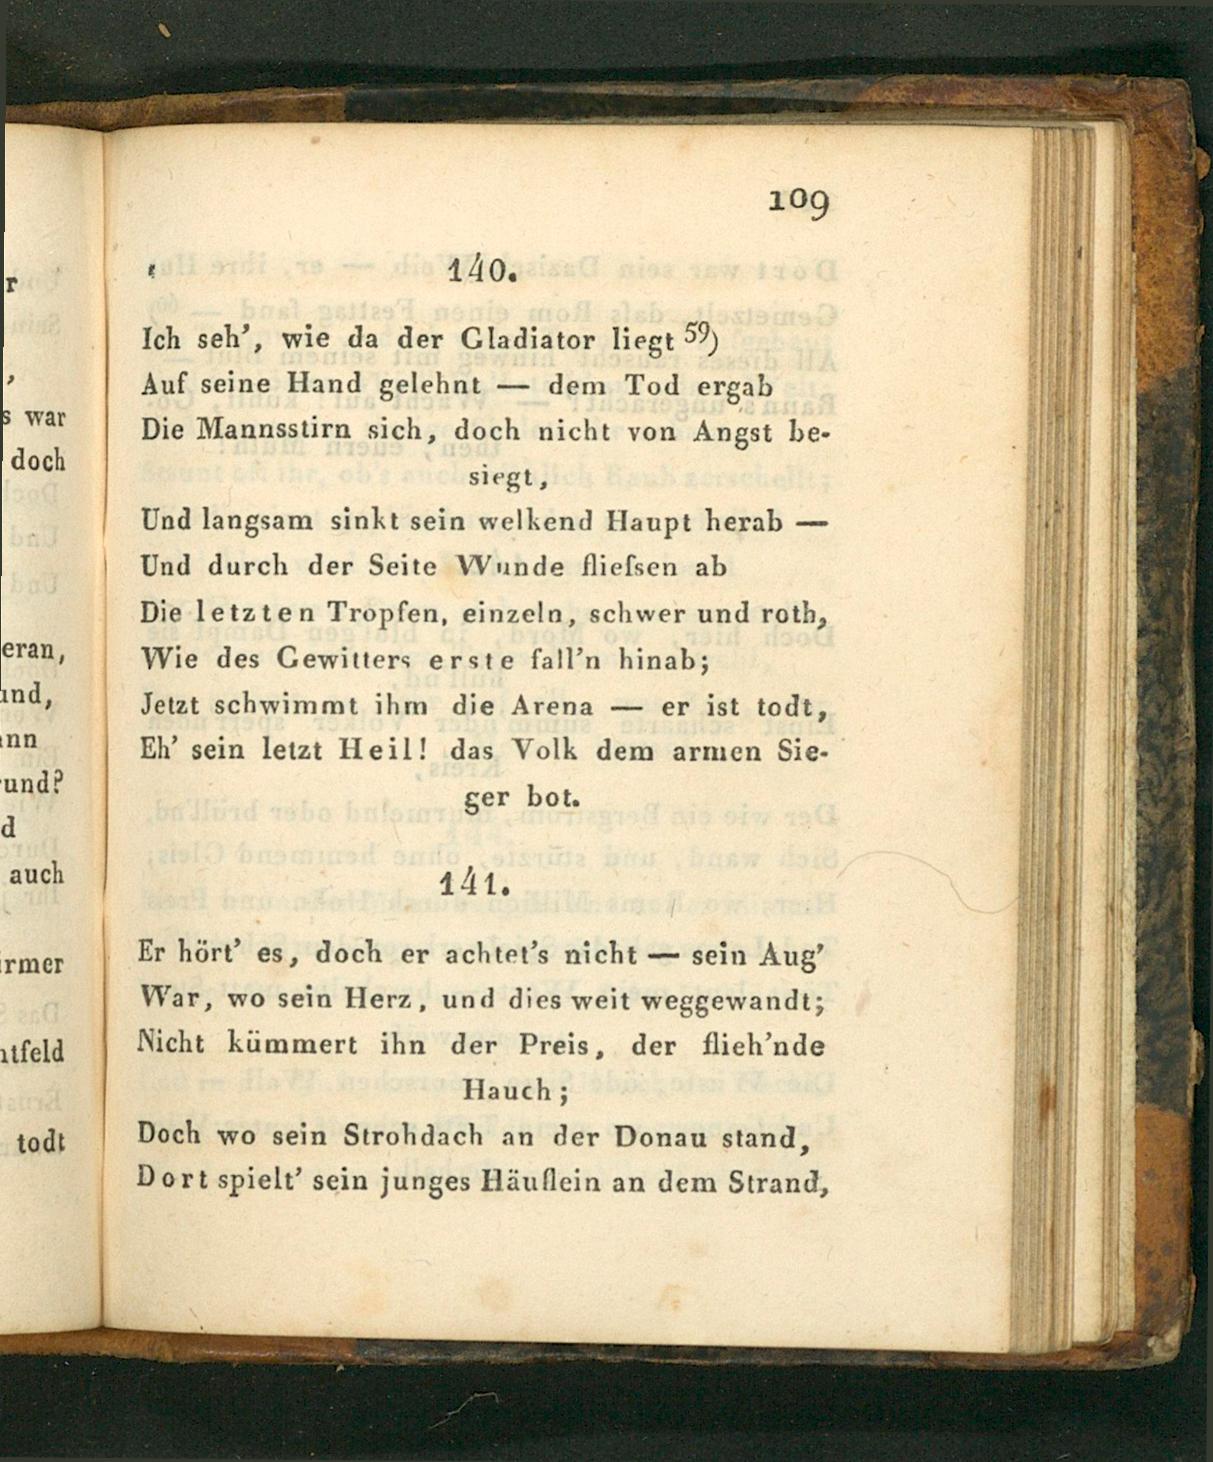 r
,
s war
doch
eran,
und,
nn
und?
d
auch
irmer
htfeld
todt
109
140.
Ich seh', wie da der Gladiator liegt 59)
Auf seine Hand gelehnt — dem Tod ergab
Die Mannsstirn sich, doch nicht von Angst be-
siegt,
Und langsam sinkt sein welkend Haupt herab —
Und durch der Seite Wunde flieſsen ab
Die letzten Tropfen, einzeln, schwer und roth,
Wie des Gewitters erste fall'n hinab;
Jetzt schwimmt ihm die Arena — er ist todt,
Eh' sein letzt Heil! das Volk dem armen Sie-
ger bot.
141.
Er hört' es, doch er achtet's nicht — sein Aug'
War, wo sein Herz, und dies weit weggewandt;
Nicht kümmert ihn der Preis, der flieh'nde
Hauch;
Doch wo sein Strohdach an der Donau stand,
Dort spielt' sein junges Häuflein an dem Strand,